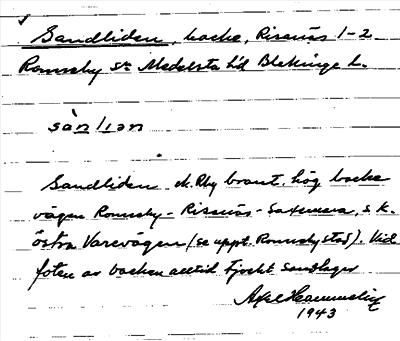 Sandliden, backe, Risanäs 1-2
Ronneby sn Medelsta hd Blekinge l.
sànlıən
Sandliden d. Rby brant, hög backe
vägen Ronneby - Risanäs - Saxemara, s.k.
östra Varevägen (se uppt. Ronneby stad). Vid
foten av backen alltid tjockt sandlager
Axel
1943